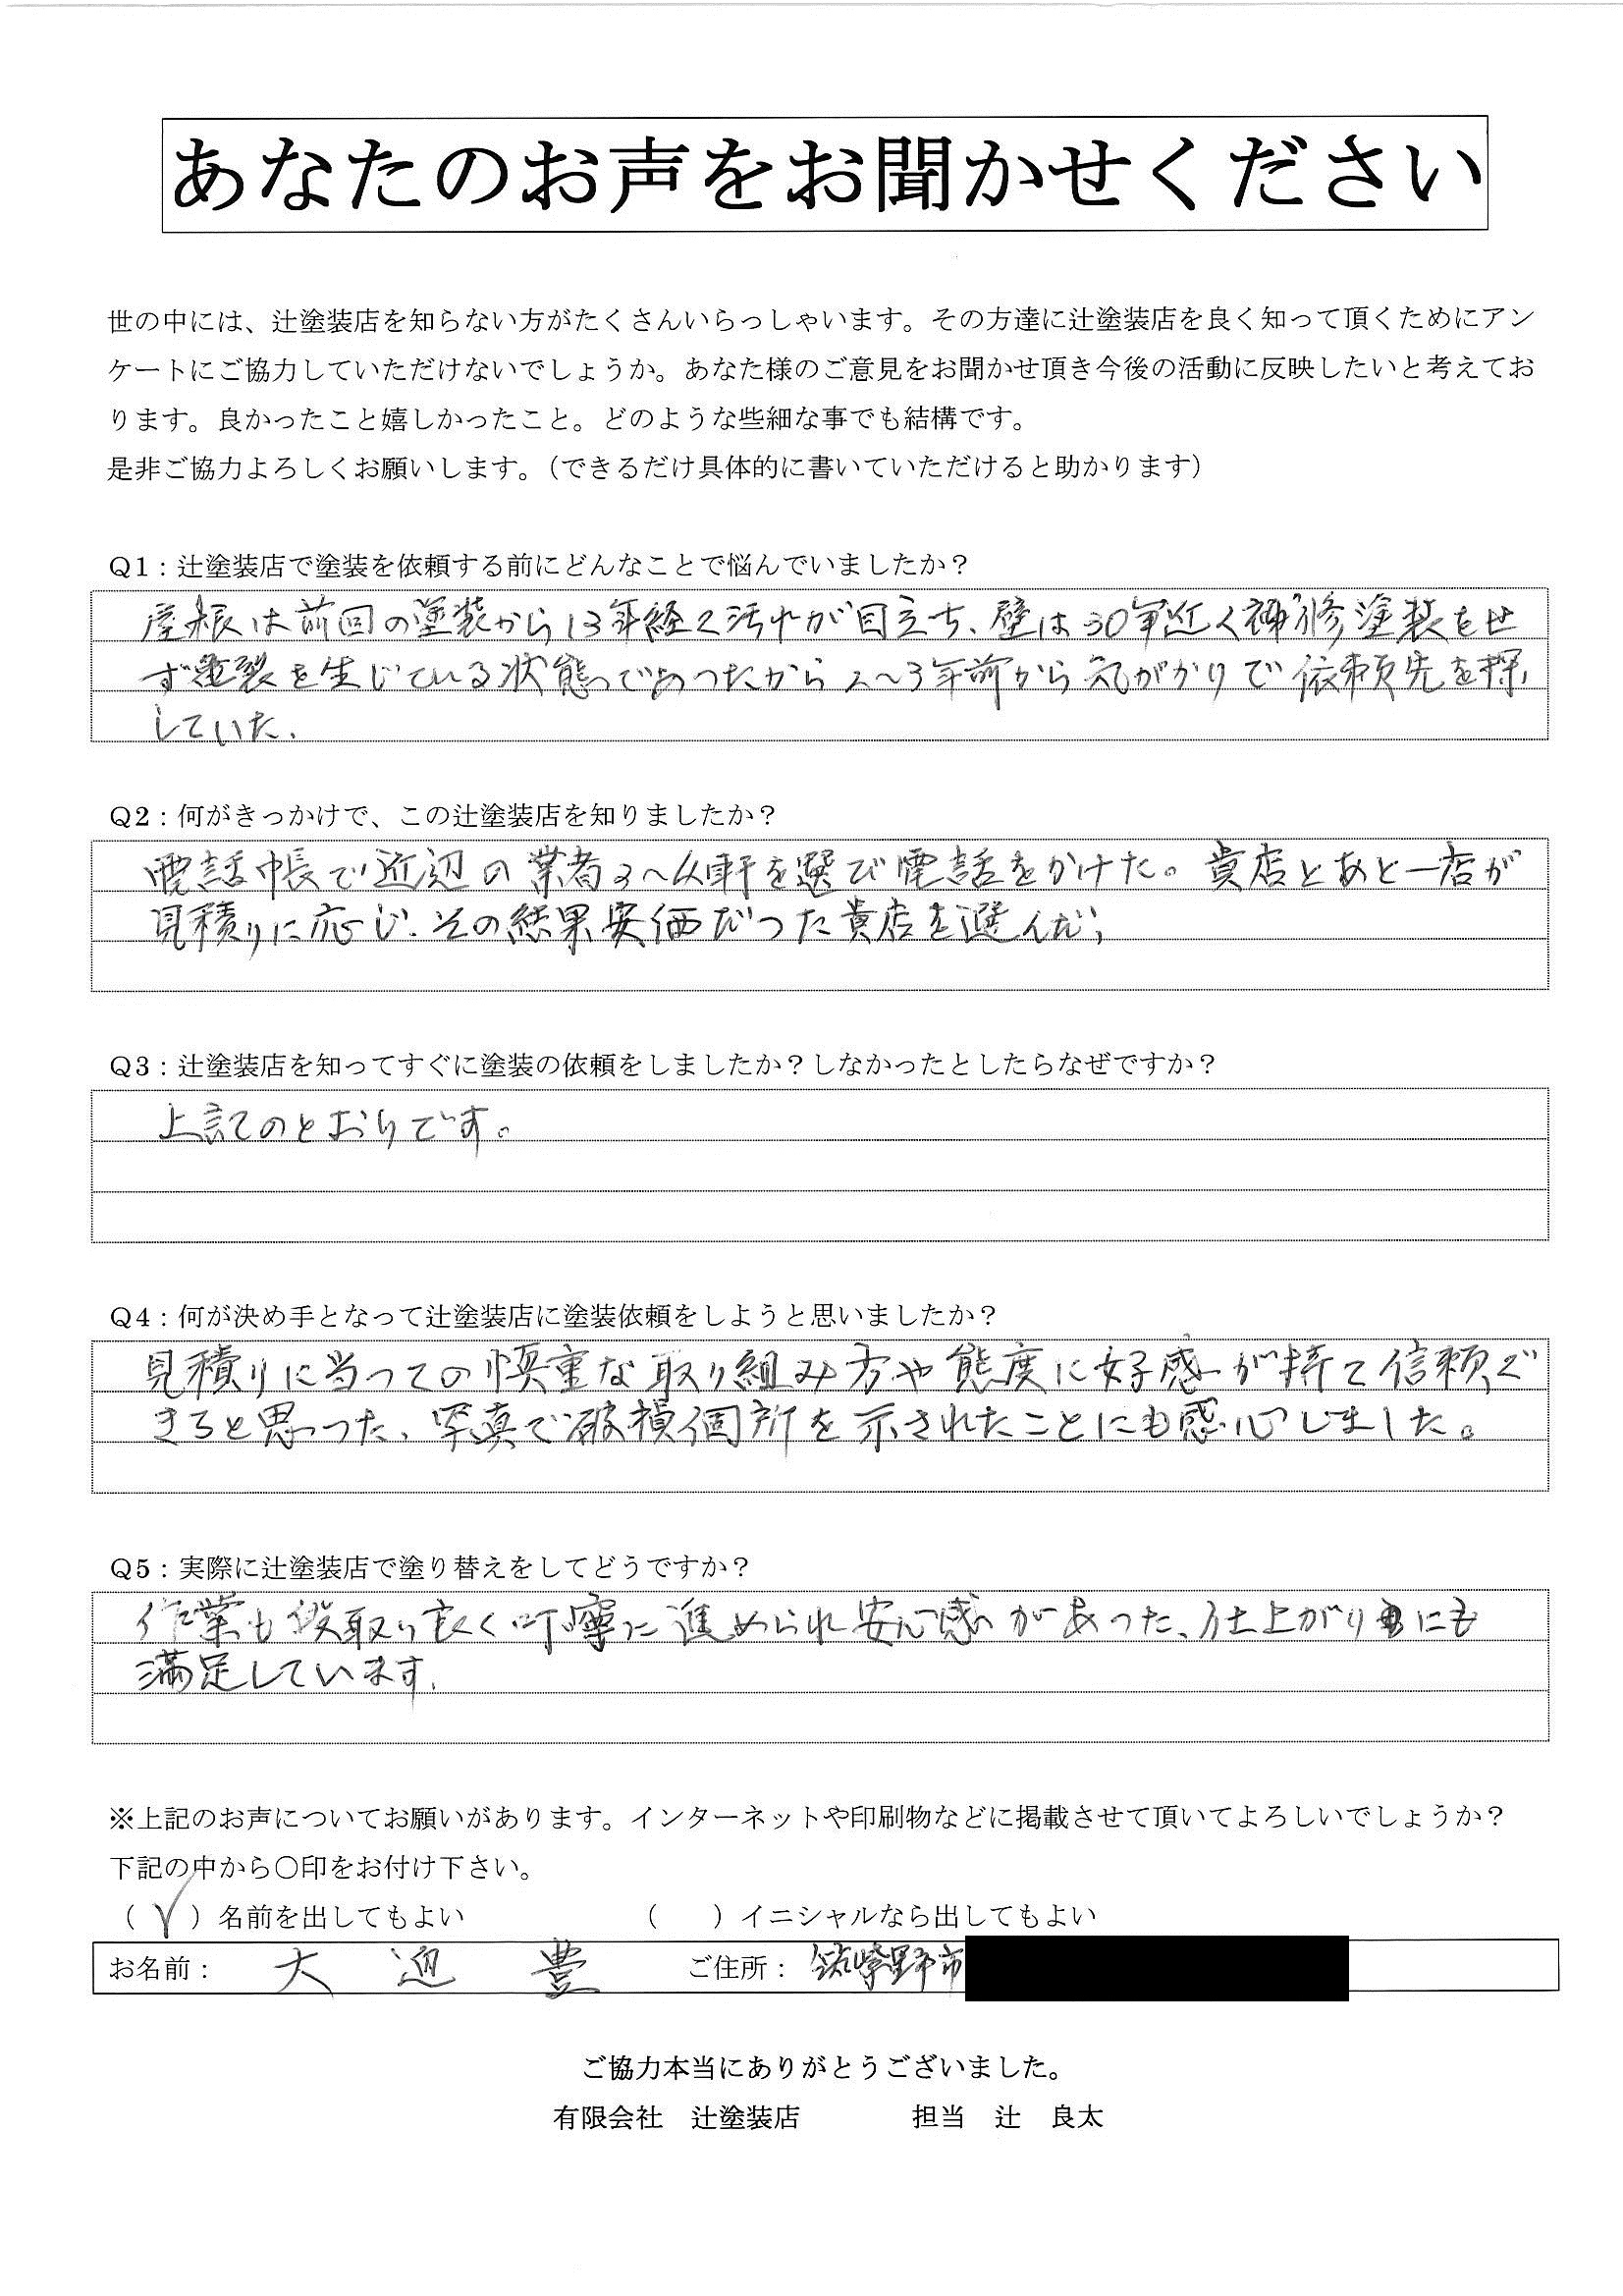 あなたのお声をお聞かせください
世の中には、辻塗装店を知らない方がたくさんいらっしゃいます。その方達に辻塗装店を良く知って頂くためにアン
ケートにご協力していただけないでしょうか。あなた様のご意見をお聞かせ頂き今後の活動に反映したいと考えてお
ります。良かったこと嬉しかったこと。どのような些細な事でも結構です。
是非ご協力よろしくお願いします。（できるだけ具体的に書いていただけると助かります）
Q1：辻塗装店で塗装を依頼する前にどんなことで悩んでいましたか？
屋根は前回の塗装から13年経ち汚れが目立ち、壁は30年近く補修塗装をせ
ず亀裂を生じている状態であったから2～3年前から気がかりで依頼先を探
していた。
Q2：何がきっかけで、この辻塗装店を知りましたか？
電話帳で近辺の業者3～4軒を選び電話をかけた。貴店とあと一店が
見積りに応じ、その結果安価だった貴店を選んだ。
Q3：辻塗装店を知ってすぐに塗装の依頼をしましたか？しなかったとしたらなぜですか？
上記のとおりです。
Q4：何が決め手となって辻塗装店に塗装依頼をしようと思いましたか？
見積りに当っての慎重な取り組み方や態度に好感が持て信頼で
きると思った、写真で破損個所を示されたことにも感心しました。
Q5：実際に辻塗装店で塗り替えをしてどうですか？
作業も段取り良く叮嚀に進められ安心感があった、仕上がりにも
満足しています。
※上記のお声についてお願いがあります。インターネットや印刷物などに掲載させて頂いてよろしいでしょうか？
下記の中から〇印をお付け下さい。
（ ✓ ）名前を出してもよい （　　）イニシャルなら出してもよい
お名前： 大迫 豊 ご住所： 筑紫野市
ご協力本当にありがとうございました。
有限会社　辻塗装店　　　担当　辻　良太